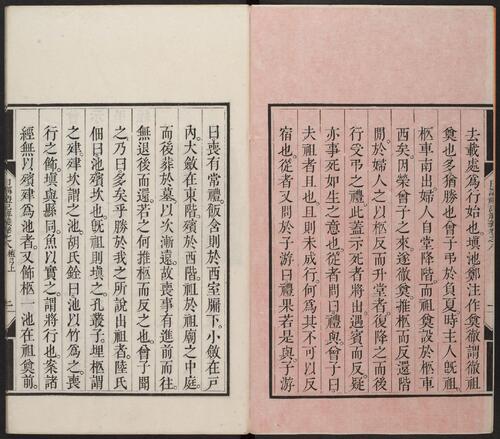 去載處爲行始也塡池鄭注作奠徹謂徹祖
奠也多猶勝也曾子弔於負夏時主人旣祖
柩車南出婦人自堂降階而祖奠設於柩車
西矣因榮曾子之來遂徹奠推柩而反還階
閒於婦人之以柩反而升堂者復降之而後
行受弔之禮此蓋示死者將出遇賓而反疑
亦事死如生之意也從者問曰禮與曾子曰
夫祖者且也且則未成行何爲其不可以反
宿也從者又問於子游曰禮果若是與子游
曰喪有常禮飯含則於西室牖下小斂在戶
內大斂在東階殯於西階祖於祖廟之中庭
而後葬於墓以次漸遠故喪事有進前而往
無退後而還若之何推柩而反之也曾子聞
之乃曰多矣乎勝於我之所說出祖者陸氏
佃曰池殯坎也旣祖則塡之孔叢子埋柩謂
之肂肂坎謂之池胡氏銓曰池以竹爲之喪
行之飾塡與縣同魚以實之謂將行也案諸
經無以殯肂爲池者又飾柩一池在祖奠前